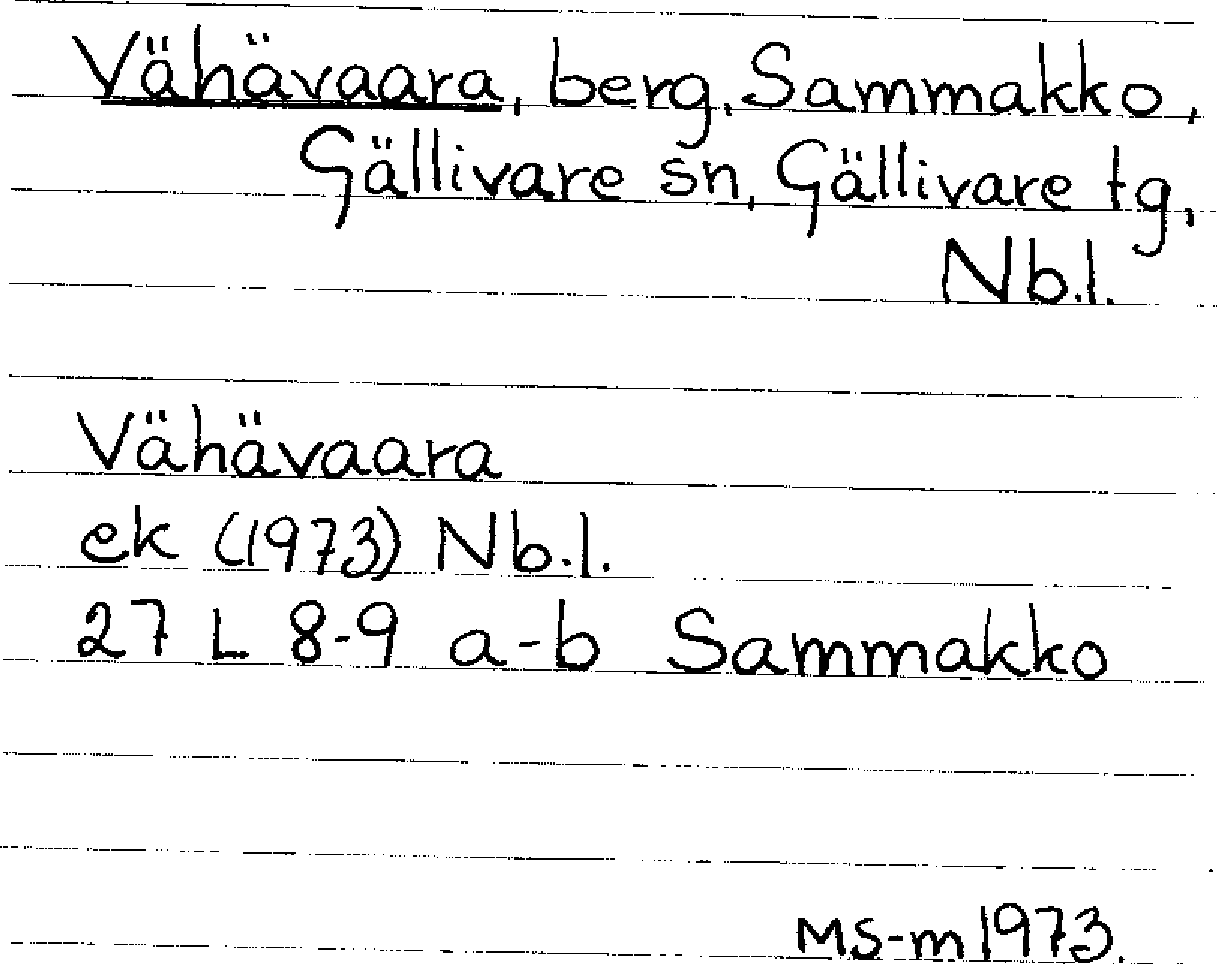 Vähävaara, berg, Sammakko,
Gällivare sn, Gällivare tg,
Nb.l.
Vähävaara
ek (1973) Nb.l.
27 L 8-9 a-b Sammakko
MS-m 1973.